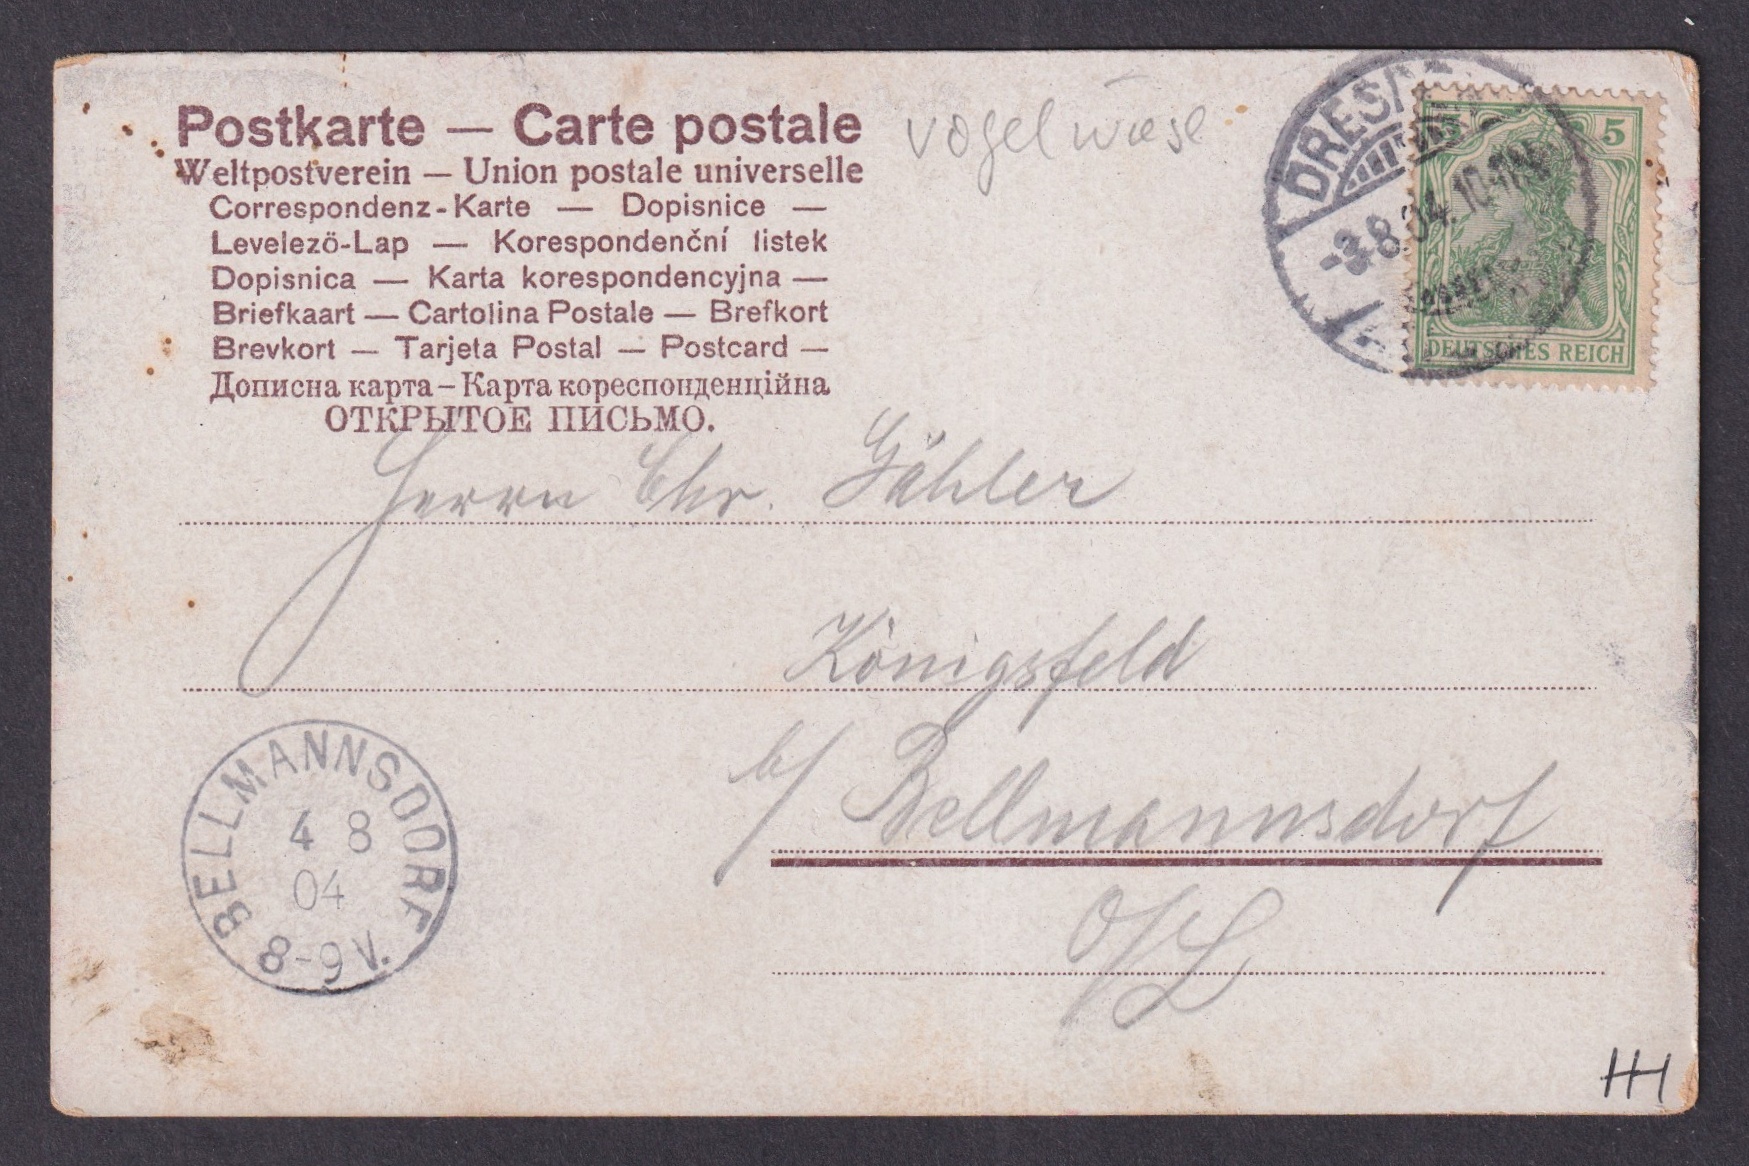 Postkarte — Carte postale
Weltpostverein — Union postale universelle
Correspondenz-Karte — Dopisnice —
Levelező-Lap — Korespondenční listek
Dopisnica — Karta korespondencyjna —
Briefkaart — Cartolina Postale — Brefkort
Brevkort — Tarjeta Postal — Postcard —
Дописна карта – Карта кореспонденційна
ОТКРЫТОЕ ПИСЬМО.
Vogelwiese
DRESD
-3.8.04.10-11V.
5 5
DEUTSCHES REICH
Herrn Chr. Gähler
Königsfeld
b/ Bellmannsdorf
O/L
BELLMANNSDORF
4 8
04
8-9 V.